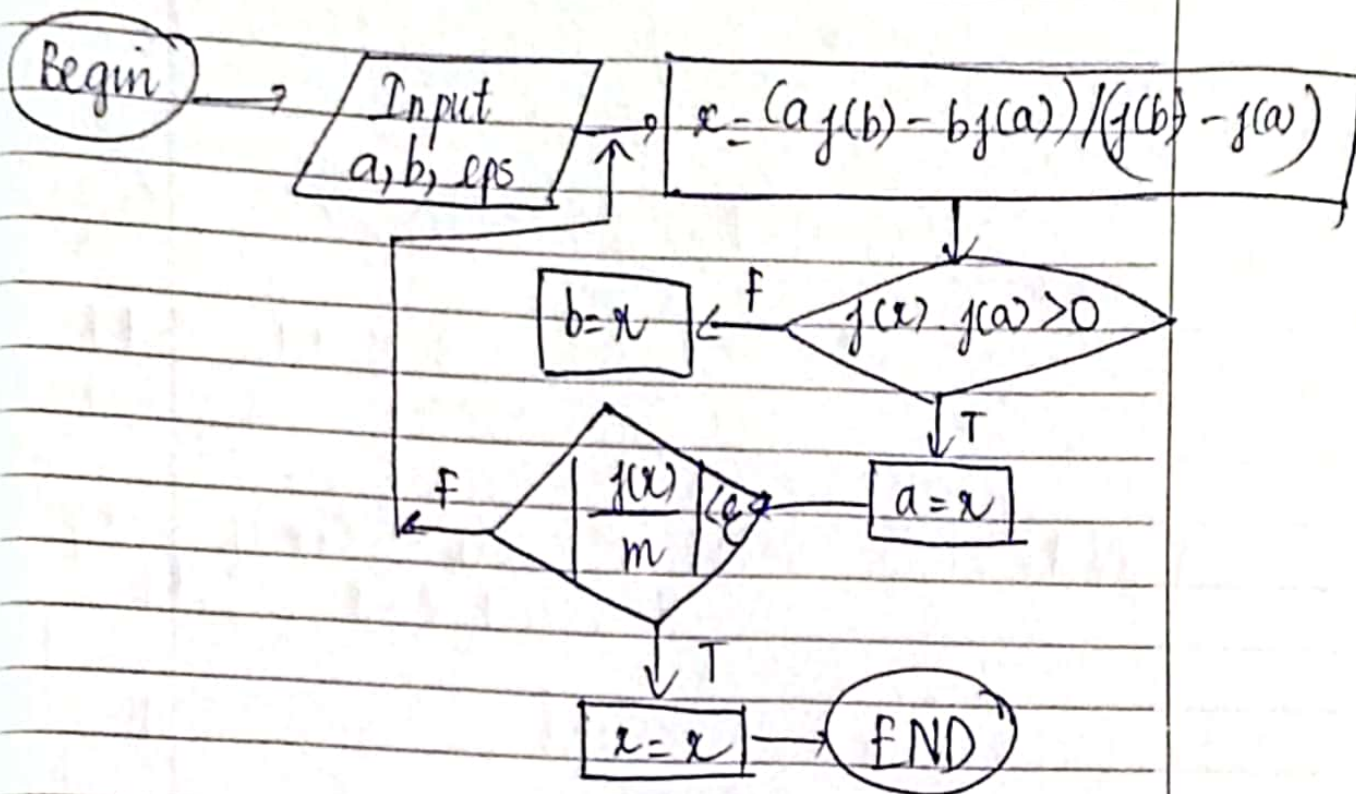 Begin
Input
a, b, eps
x = (a f(b) - b f(a)) / (f(b) - f(a))
f(x) . f(a) > 0
F
b = x
T
a = x
| f(x) / m | < ε
F
T
x = x
END